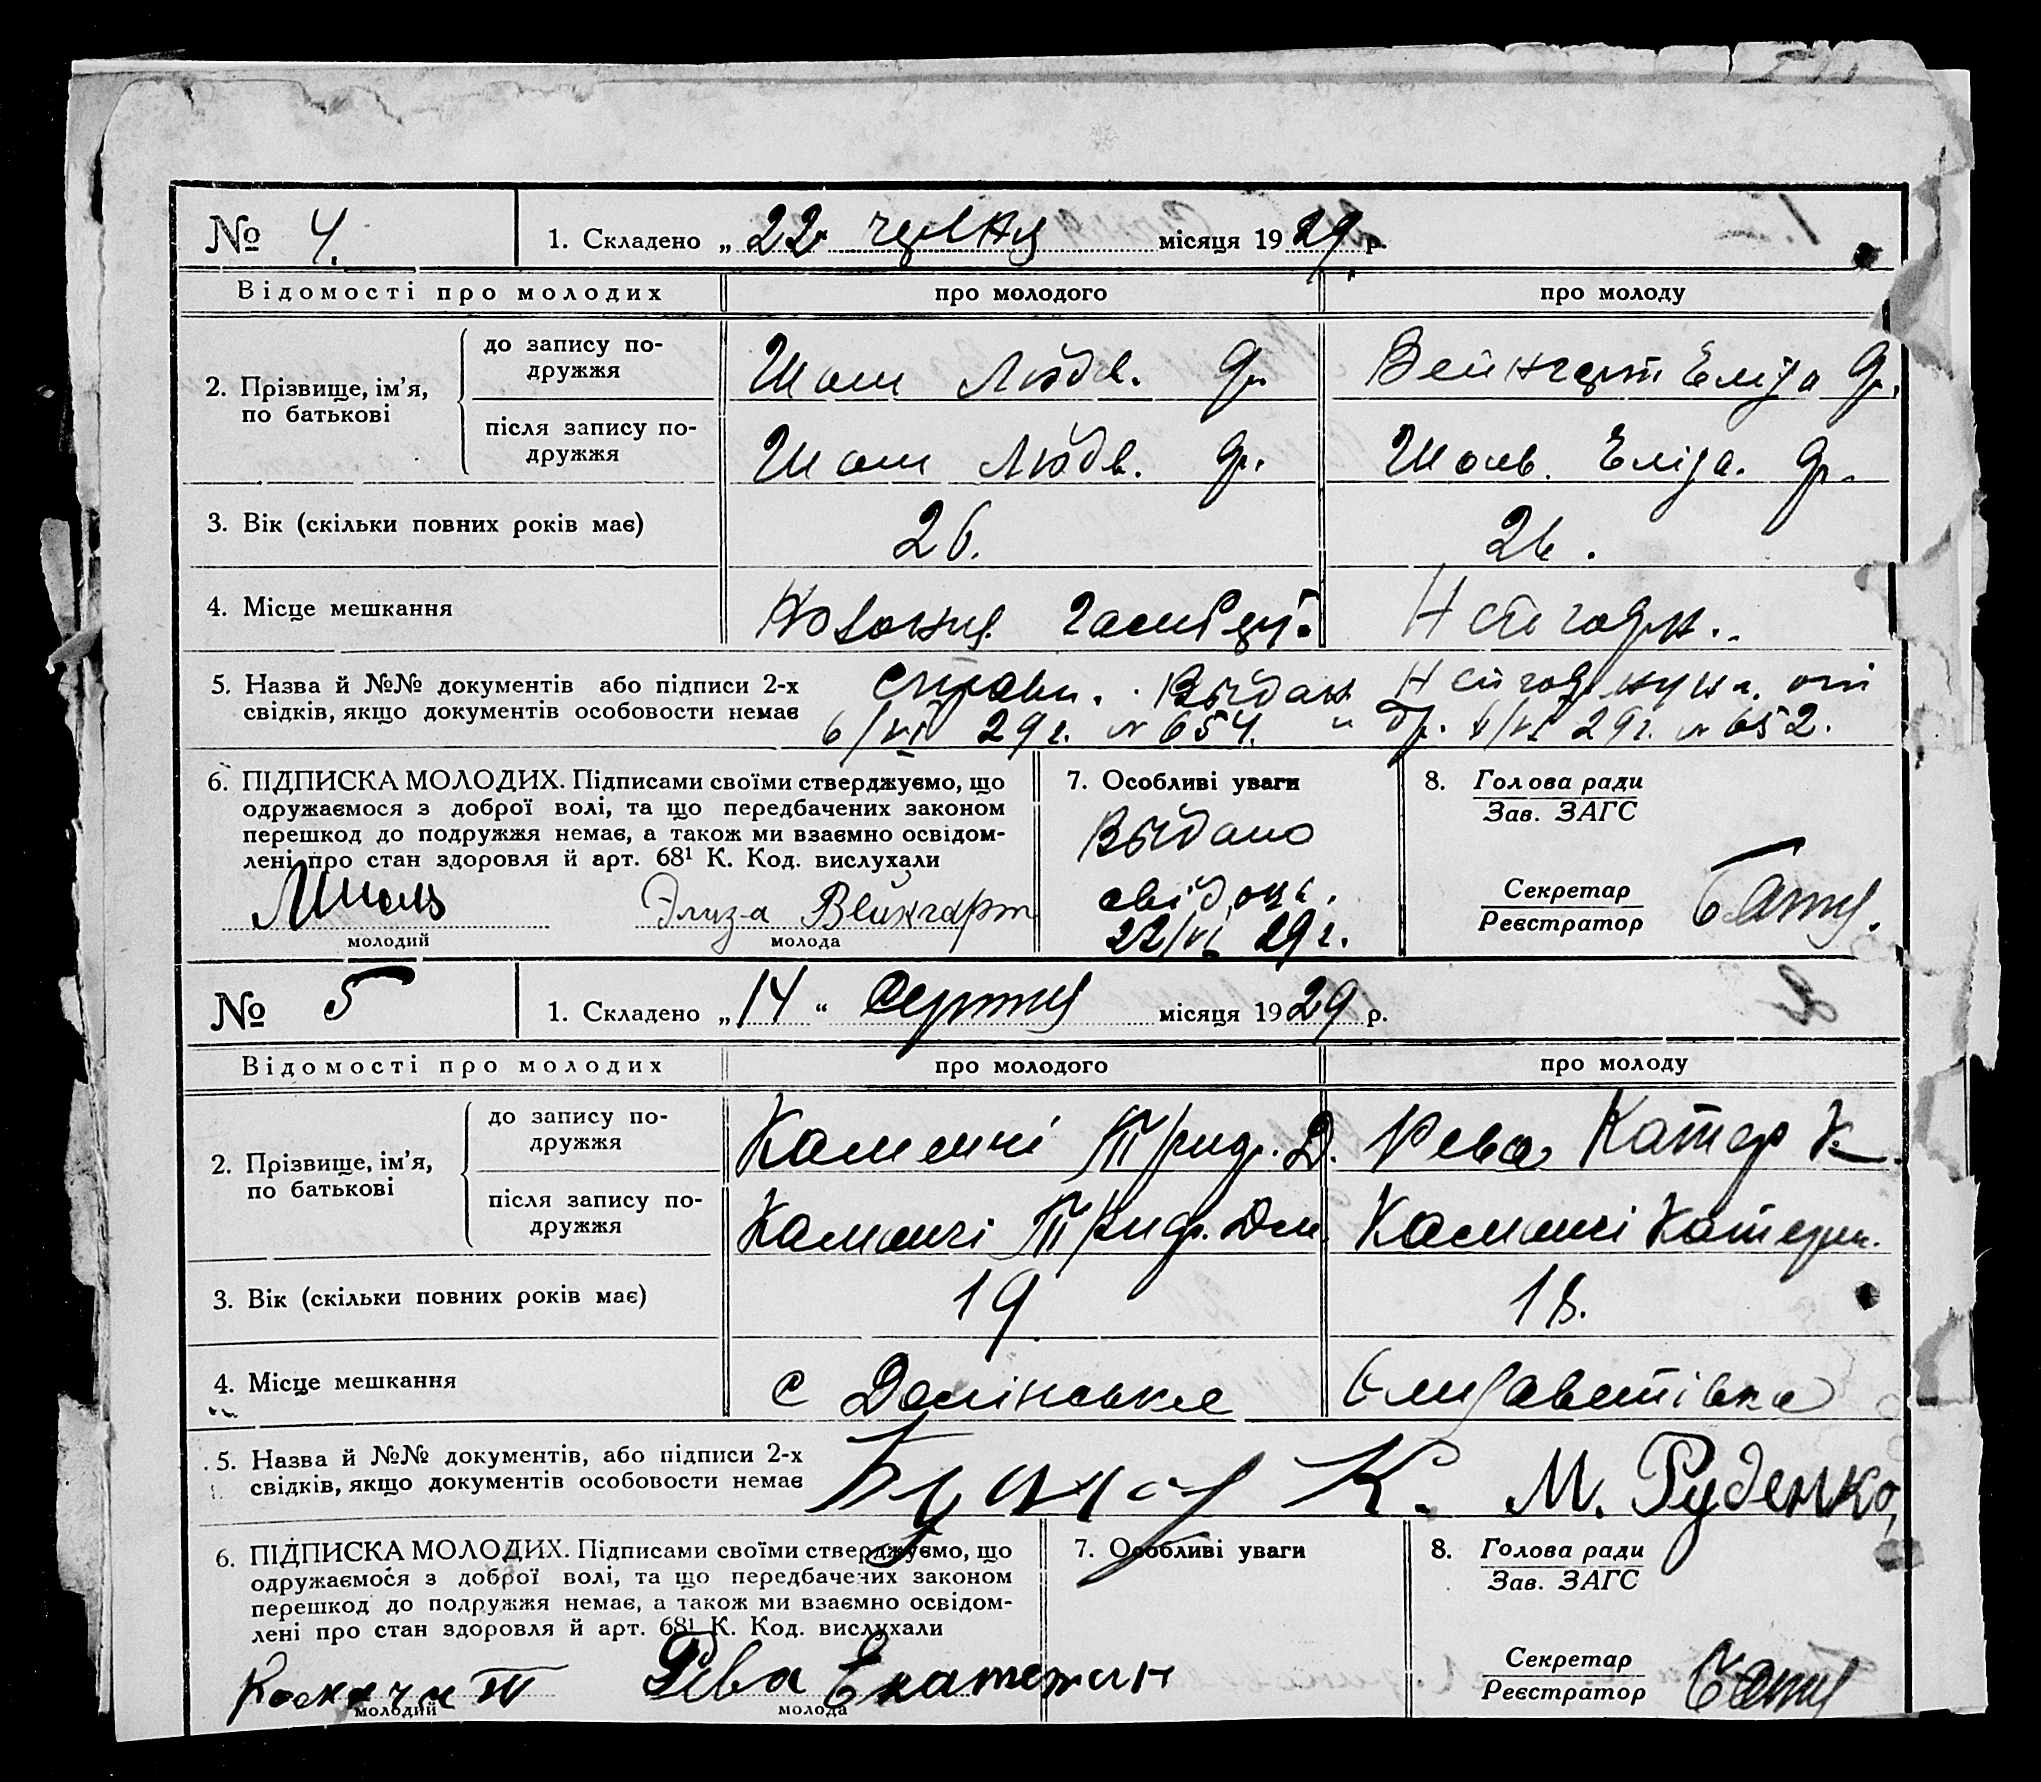 № 4. 1. Складено „ 22 червня місяця 1929 р.
Відомості про молодих про молодого про молоду
2. Прізвище, ім’я, по батькові
до запису по-
дружжя
Шолл Людв. Фр. Вейнгарт Еліза Фр.
після запису по-
дружжя
Шолл Людв. Фр. Еліза. Фр.
3. Вік (скільки повних років має) 26. 26.
4. Місце мешкання
5. Назва й №№ документів або підписи 2-х справк. Выдан
свідків, якщо документів особовости немає 6/VI 29 г. № 654. 6/VI 29 г. № 652.
6. ПІДПИСКА МОЛОДИХ. Підписами своїми стверджуємо, що
одружаємося з доброї волі, та що передбачених законом
перешкод до подружжя немає, а також ми взаємно освідом-
лені про стан здоровля й арт. 68¹ К. Код. вислухали
Элиза Вейнгарт
молодий молода
7. Особливі уваги
Выдано
свідоц.
22/VI 29 г.
8. Голова ради
Зав. ЗАГС
Секретар
Реєстратор
№ 5 1. Складено „ 14 “ Серпня місяця 1929 р.
Відомості про молодих про молодого про молоду
2. Прізвище, ім’я, по батькові
до запису по-
дружжя
Д. Рева Катер К.
після запису по-
дружжя
Дм. Катерин.
3. Вік (скільки повних років має) 19 18.
4. Місце мешкання с Долінське Єлизаветівка
5. Назва й №№ документів, або підписи 2-х К. М. Руденко,
свідків, якщо документів особовости немає
6. ПІДПИСКА МОЛОДИХ. Підписами своїми стверджуємо, що
одружаємося з доброї волі, та що передбачених законом
перешкод до подружжя немає, а також ми взаємно освідом-
лені про стан здоровля й арт. 68¹ К. Код. вислухали
Рева Екатерин
молодий молода
7. Особливі уваги
8. Голова ради
Зав. ЗАГС
Секретар
Реєстратор